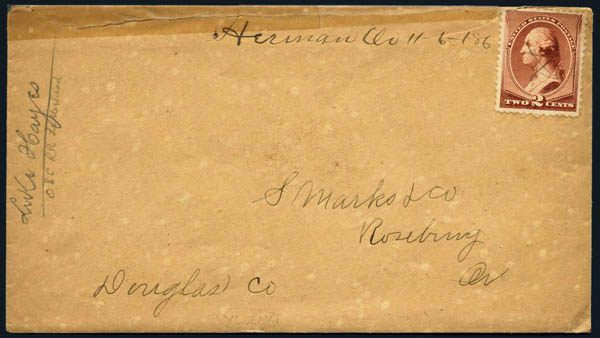 Herman Or 11-6-186
UNITED STATES POSTAGE
TWO 2 CENTS
Luke Hayes
O & C RR
S Marks & Co
Roseburg
Or
Douglas Co